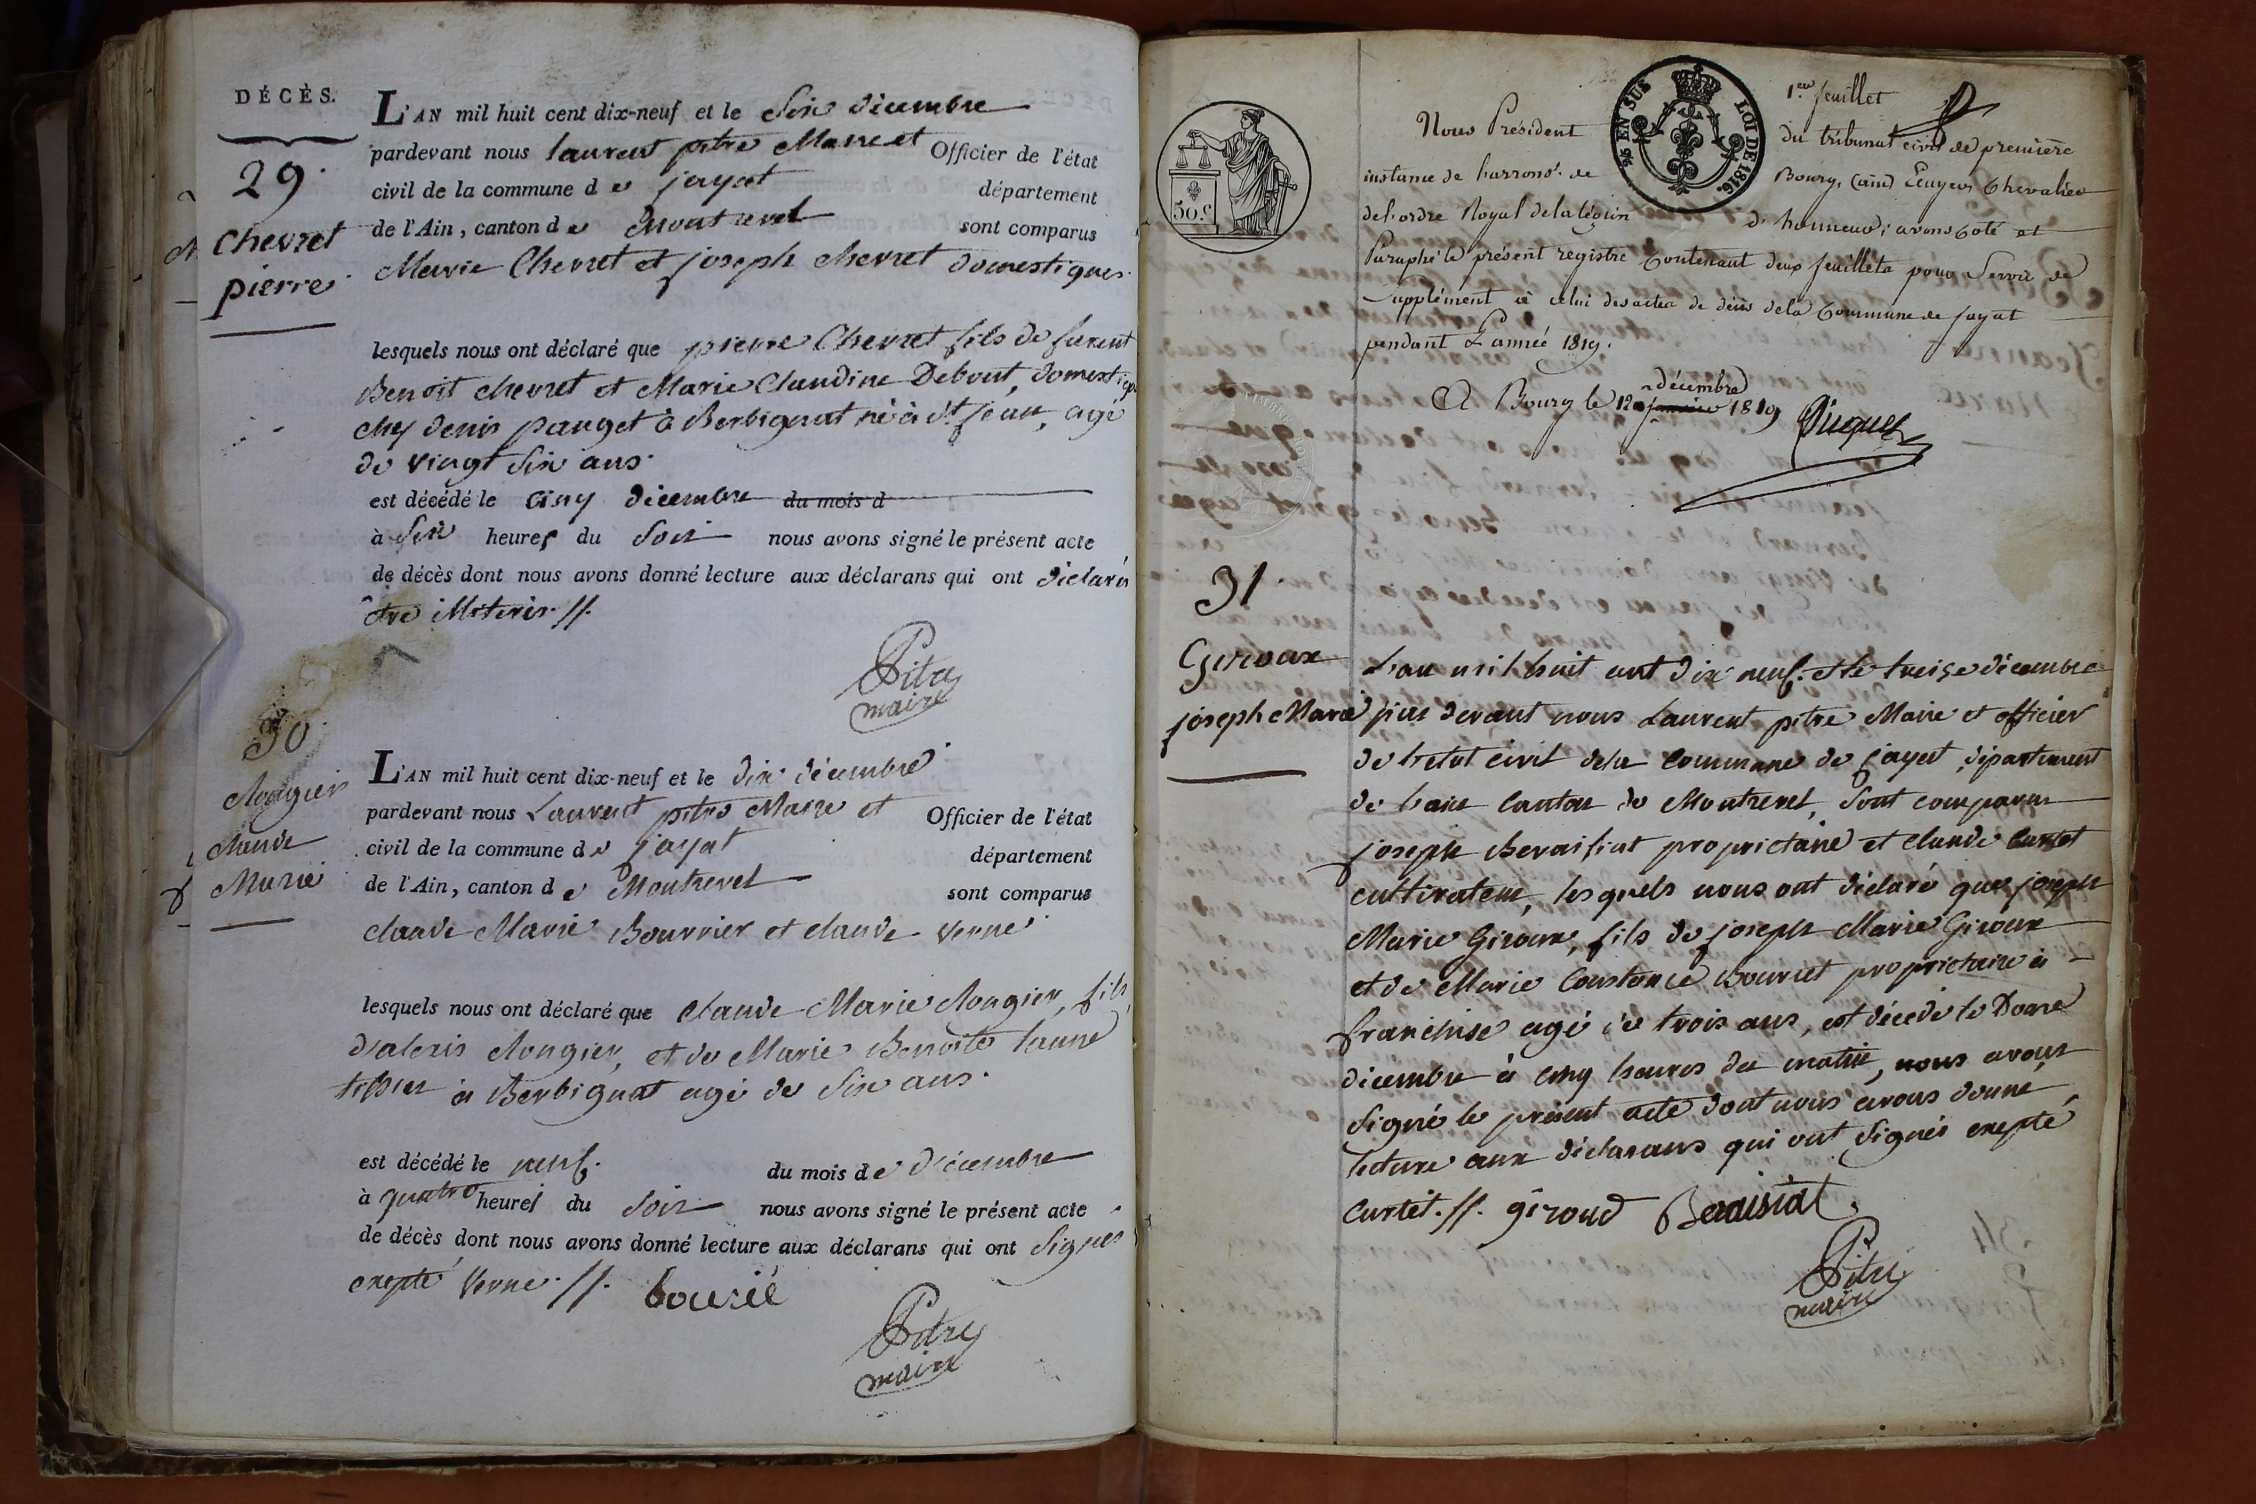 DÉCÈS.
29.
Chevret
pierre.
L'AN mil huit cent dix-neuf et le Six décembre
pardevant nous laurent pitre Maire et Officier de l'état
civil de la commune de jayat département
de l'Ain, canton de Montrevel sont comparus
Marie Chevret et joseph chevret domestiques.
lesquels nous ont déclaré que pierre Chevret fils de furent
Benoit chevret et Marie Claudine Debout, domestique
chez denis pauget à Berbignat né à St. jean, agé
de vingt Six ans.
est décédé le cinq décembre du mois d
à Six heures du Soir nous avons signé le présent acte
de décès dont nous avons donné lecture aux déclarans qui ont déclarés
être iliterés. //.
Pitre
maire
30
Rougier
claude
Marie
L'AN mil huit cent dix-neuf et le dix décembre
pardevant nous Laurent pitre Maire et Officier de l'état
civil de la commune de jayat département
de l'Ain, canton de Montrevel sont comparus
claude Marie Bourrier et claude Verne.
lesquels nous ont déclaré que claude Marie Rougier, fils
d'alexis Rougier, et de Marie Benoite
tissier à Berbignat agé de Six ans.
est décédé le neuf. du mois de décembre
à quatre heures du Soir nous avons signé le présent acte
de décès dont nous avons donné lecture aux déclarans qui ont Signés
excepté Verne. //. bourié
Pitre
maire
50.c
5/5 EN SUS
LOI DE 1816.
1.er feuillet
Nous Président du tribunal civil de premiere
instance de l'arrond.t de Bourg, (ain) Ecuyer, Chevalier
de l'ordre Royal de la légion d'honneur; avons coté et
Paraphé le présent registre Contenant deux feuillets pour Servir de
Supplément à celui des actes de décès de la Commune de Jayat
pendant L'année 1819.
décembre
A Bourg le 12 janvier 1819
Picquet
31.
Giroux
joseph Marie
L'an mil huit cent dix neuf. et le treize décembre
par devant nous Laurent pitre Maire et officier
de l'etat civil de la commune de jayat, département
de l'ain canton de Montrevel, Sont comparus
joseph Beraisiat proprietaire et claude Curtet
cultivateur, lesquels nous ont déclaré que joseph
Marie Giroux, fils de joseph Marie Giroux
et de Marie Constance Bourcet proprietaire à
franchise agé de trois ans, est décédé le Douze
décembre à cinq heures du matin, nous avons
Signé le présent acte dont nous avons donné
lecture aux déclarans qui ont Signés excepté
Curtet. //. giroud Beraisiat.
Pitre
maire